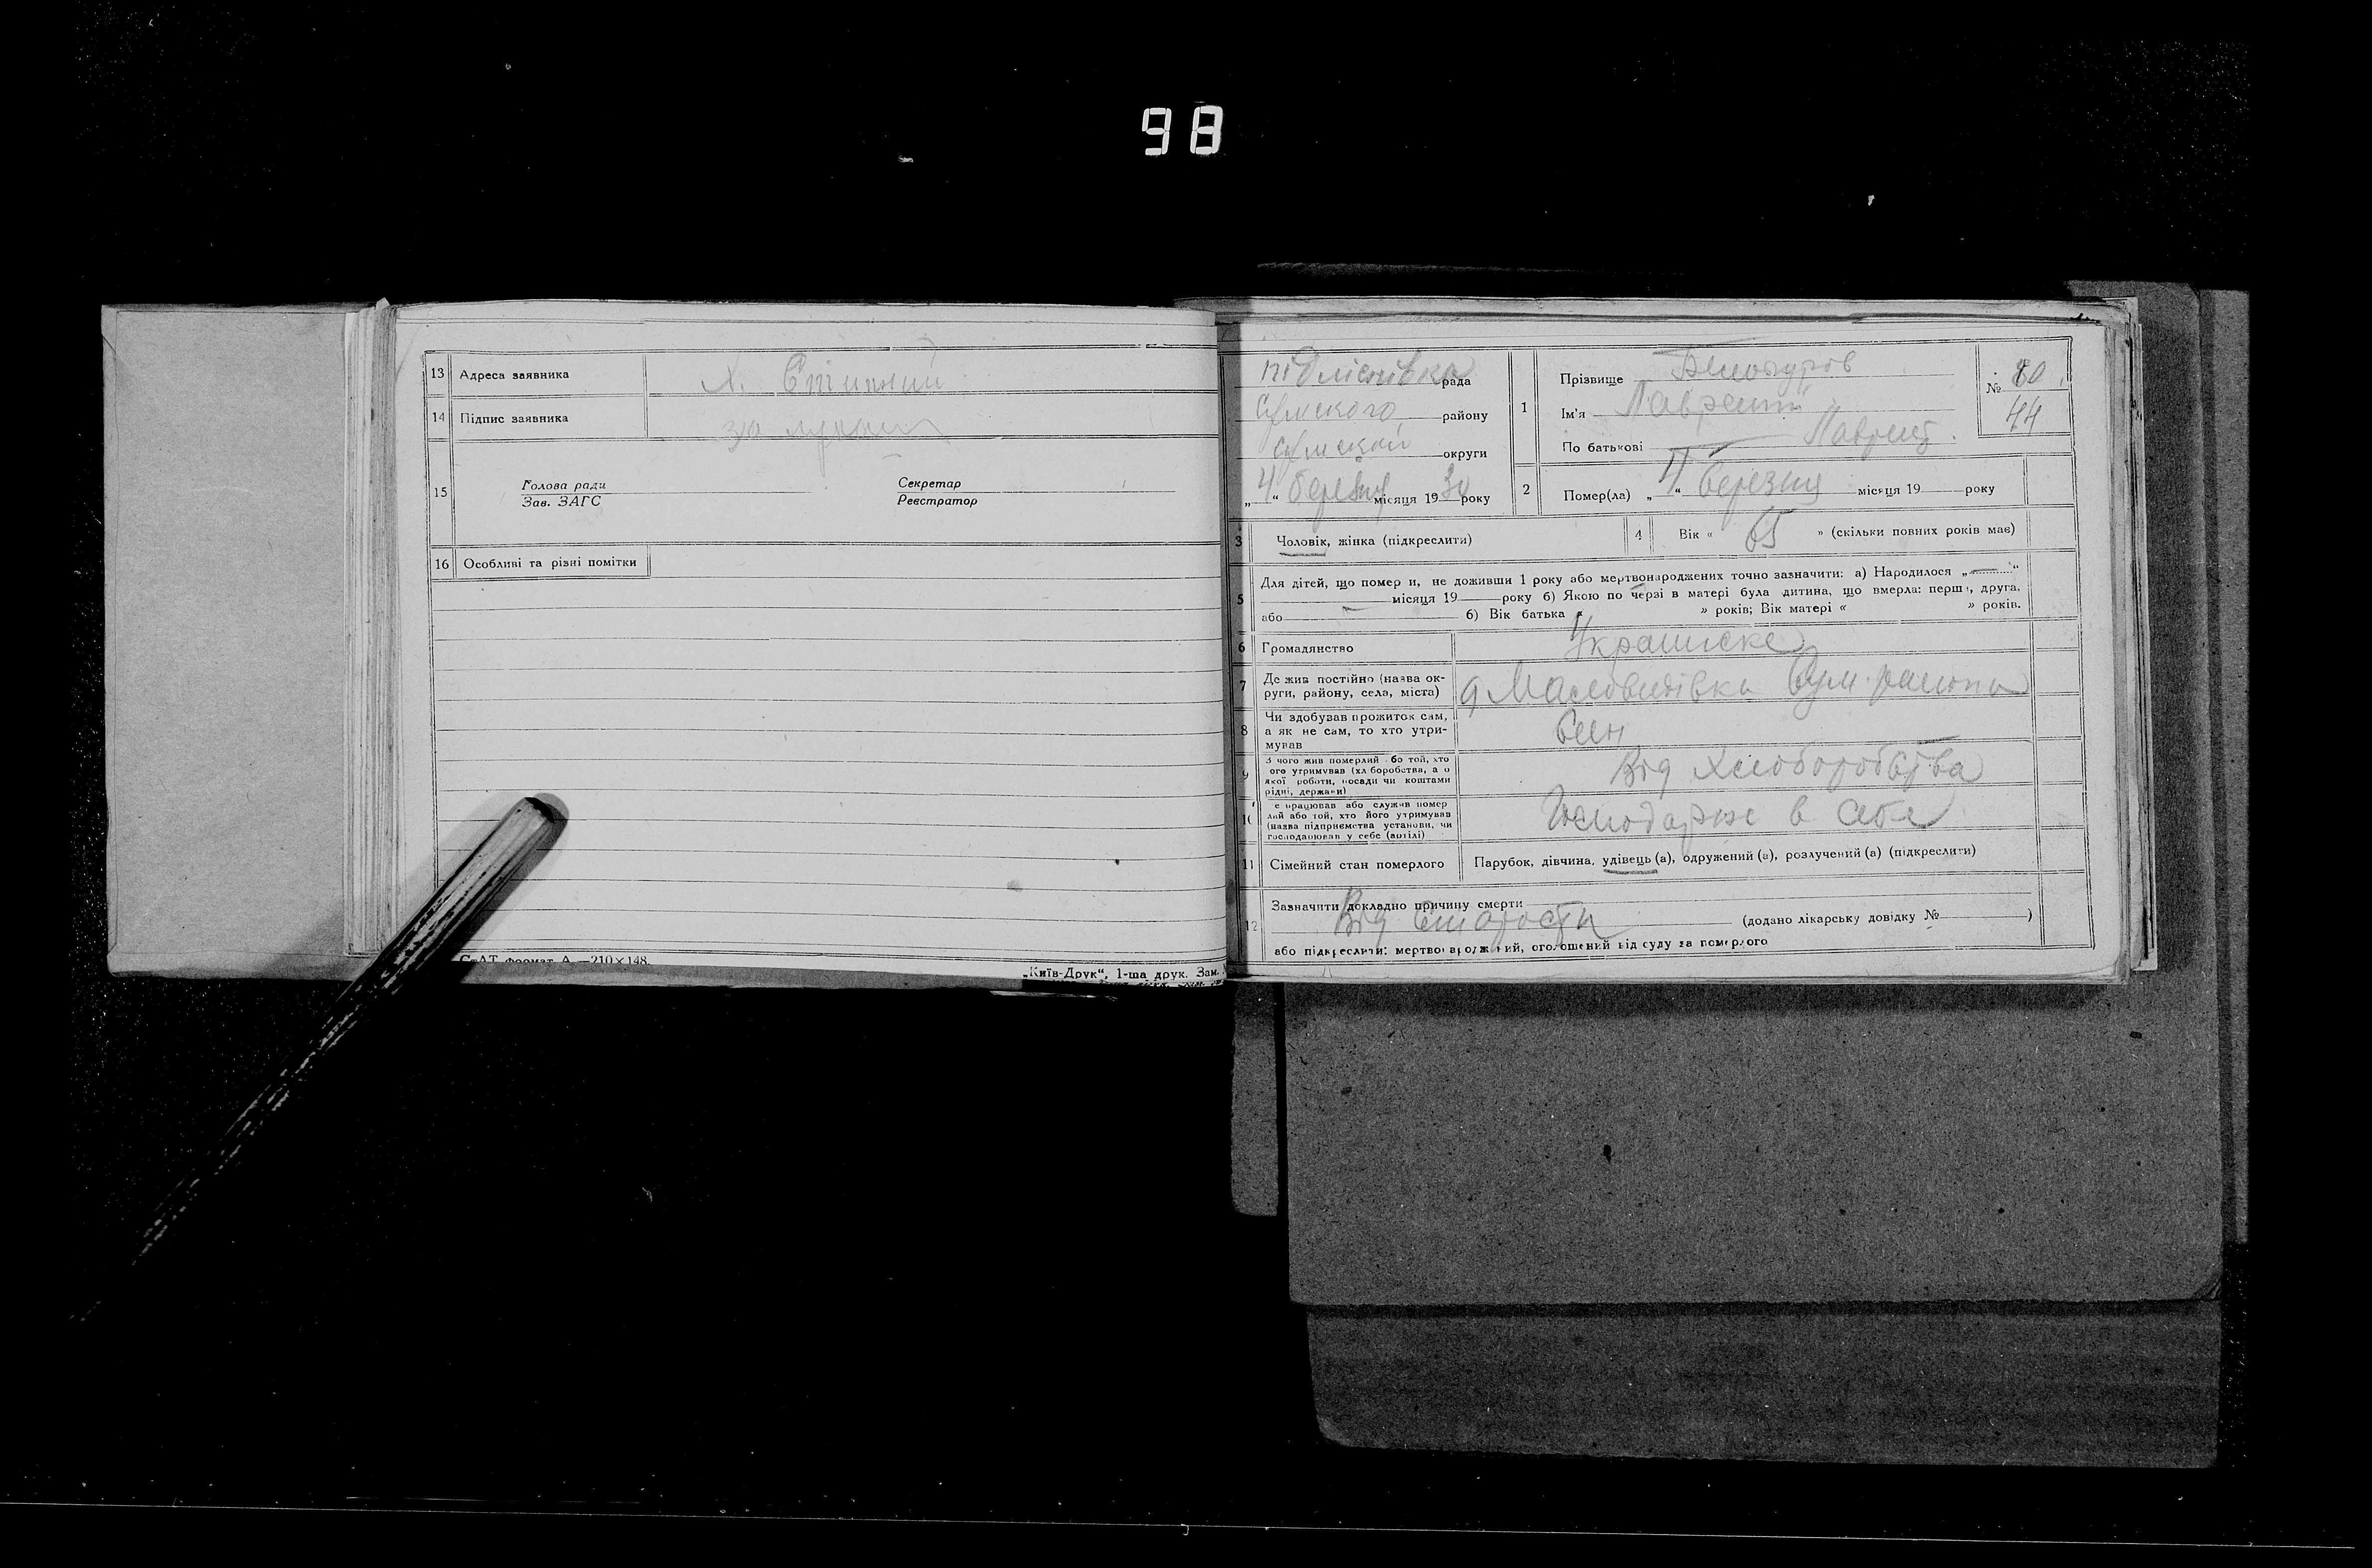 98
13 Адреса заявника х. Степний
14 Підпис заявника за
15 Голова ради Секретар
Зав. ЗАГС Реєстратор
16 Особливі та різні помітки
формат А —210×148.
„Київ-Друк“, 1-ша друк. Зам.
Підліснівка рада
Сумского району
Сумской округи
„4“ березня місяця 1930 року
1 Прізвище
Ім'я Лаврентій
По батькові Лаврент.
№ 80
44
2 Помер(ла) „4“ березня місяця 19 року
3 Чоловік, жінка (підкреслити)
4 Вік « 65 » (скільки повних років має)
5 Для дітей, що помер и, не доживши 1 року або мертвонароджених точно зазначити: а) Народилося „ “
місяця 19 року б) Якою по черзі в матері була дитина, що вмерла: перш , друга,
або б) Вік батька « » років; Вік матері « » років.
6 Громадянство Украінске
7 Де жив постійно (назва ок-
руги, району, села, міста) Сум. района
8 Чи здобував прожиток сам,
а як не сам, то хто утри-
мував Син
9 З чого жив померлий бо той, хто
ого утримував (хл боробства, а о
якої роботи, посади чи коштами
рідні, держави) Від Хлеборобства
10 е працював або служив помер
лий або той, хто його утримував
(назва підприємства установи, чи
господарював у себе (артілі) Господарює в себе
11 Сімейний стан померлого Парубок, дівчина, удівець (а), одружений (а), розлучений (а) (підкреслити)
12 Зазначити докладно причину смерти
Від Старости (додано лікарську довідку № )
або підкреслити: мертвонароджений, оголошений від суду за померлого